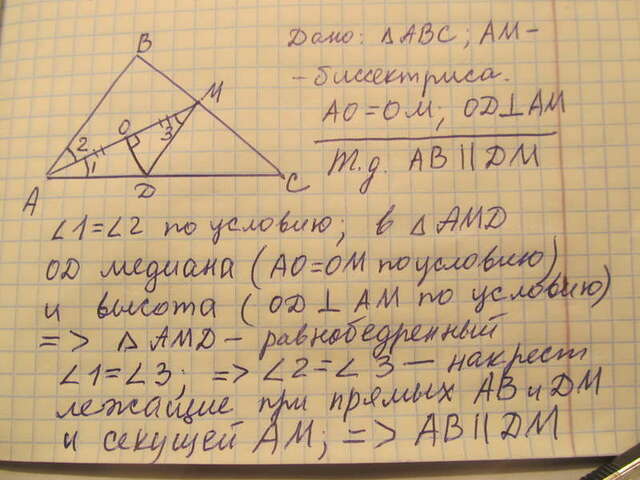 Дано: △ABC; AM-
-биссектриса.
AO=OM; OD⊥AM
Т.д. AB || DM
B
M
2
O
3
1
A
D
C
∠1=∠2 по условию; в △AMD
OD медиана (AO=OM по условию)
и высота (OD ⊥ AM по условию)
=> △AMD - равнобедренный
∠1=∠3; => ∠2=∠3 — накрест
лежайщие при прямых AB и DM
и секущей AM; => AB || DM